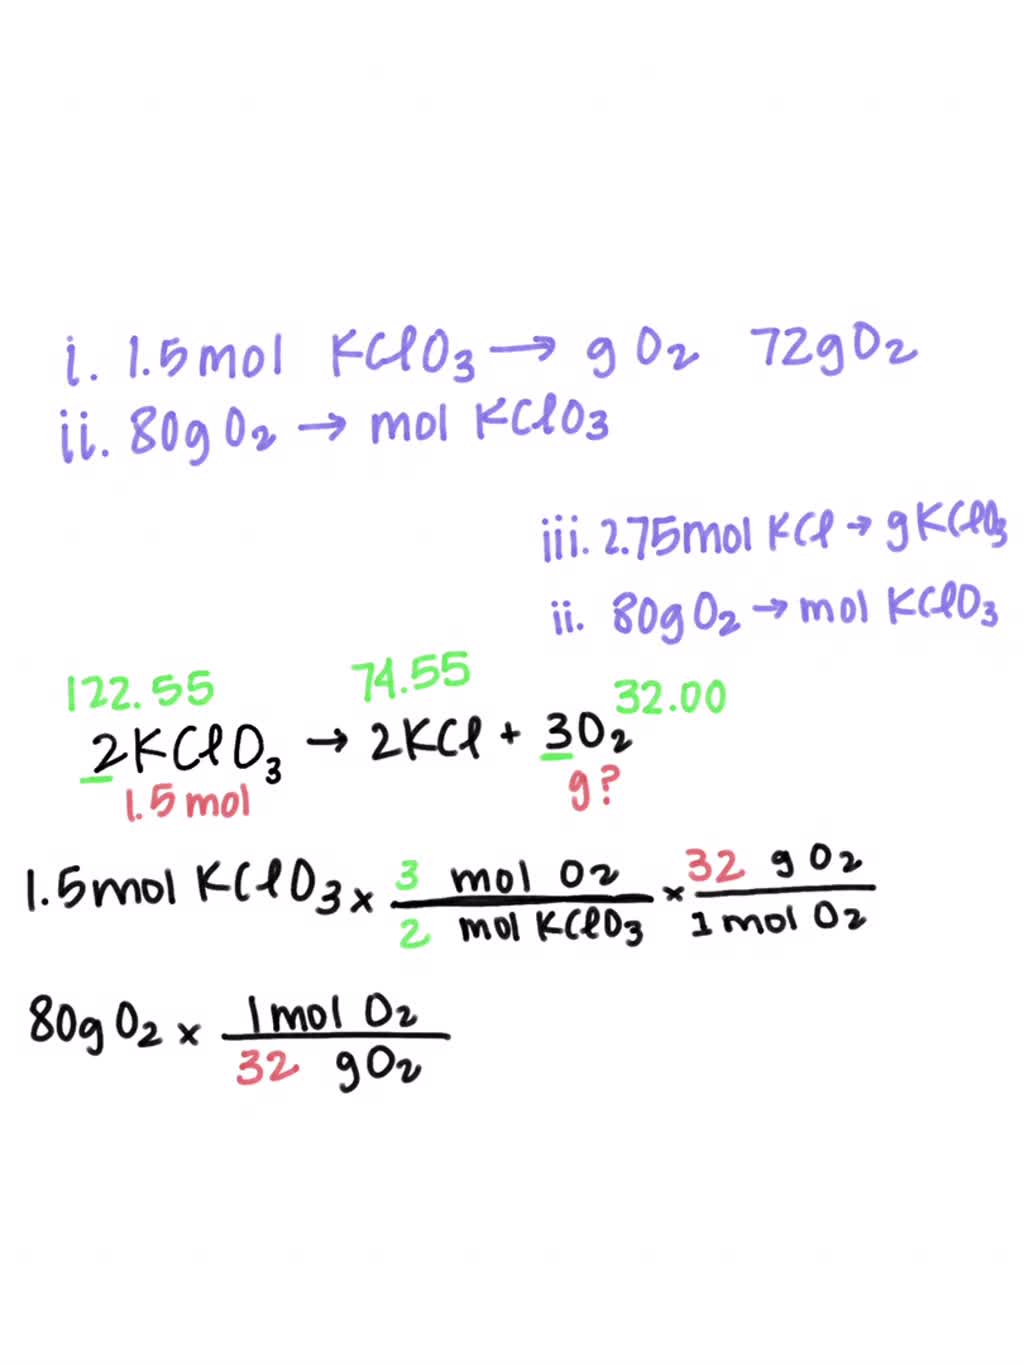 i. 1.5mol KClO₃ → g O₂ 72gO₂
ii. 80gO₂ → mol KClO₃
iii. 2.75mol KCl → gKClO₃
ii. 80gO₂ → mol KClO₃
122.55 74.55 32.00
2KClO₃ → 2KCl + 3O₂
1.5mol g?
1.5mol KClO₃ × 3 mol O₂ / 2 mol KClO₃ × 32 g O₂ / 1 mol O₂
80gO₂ × 1mol O₂ / 32 gO₂